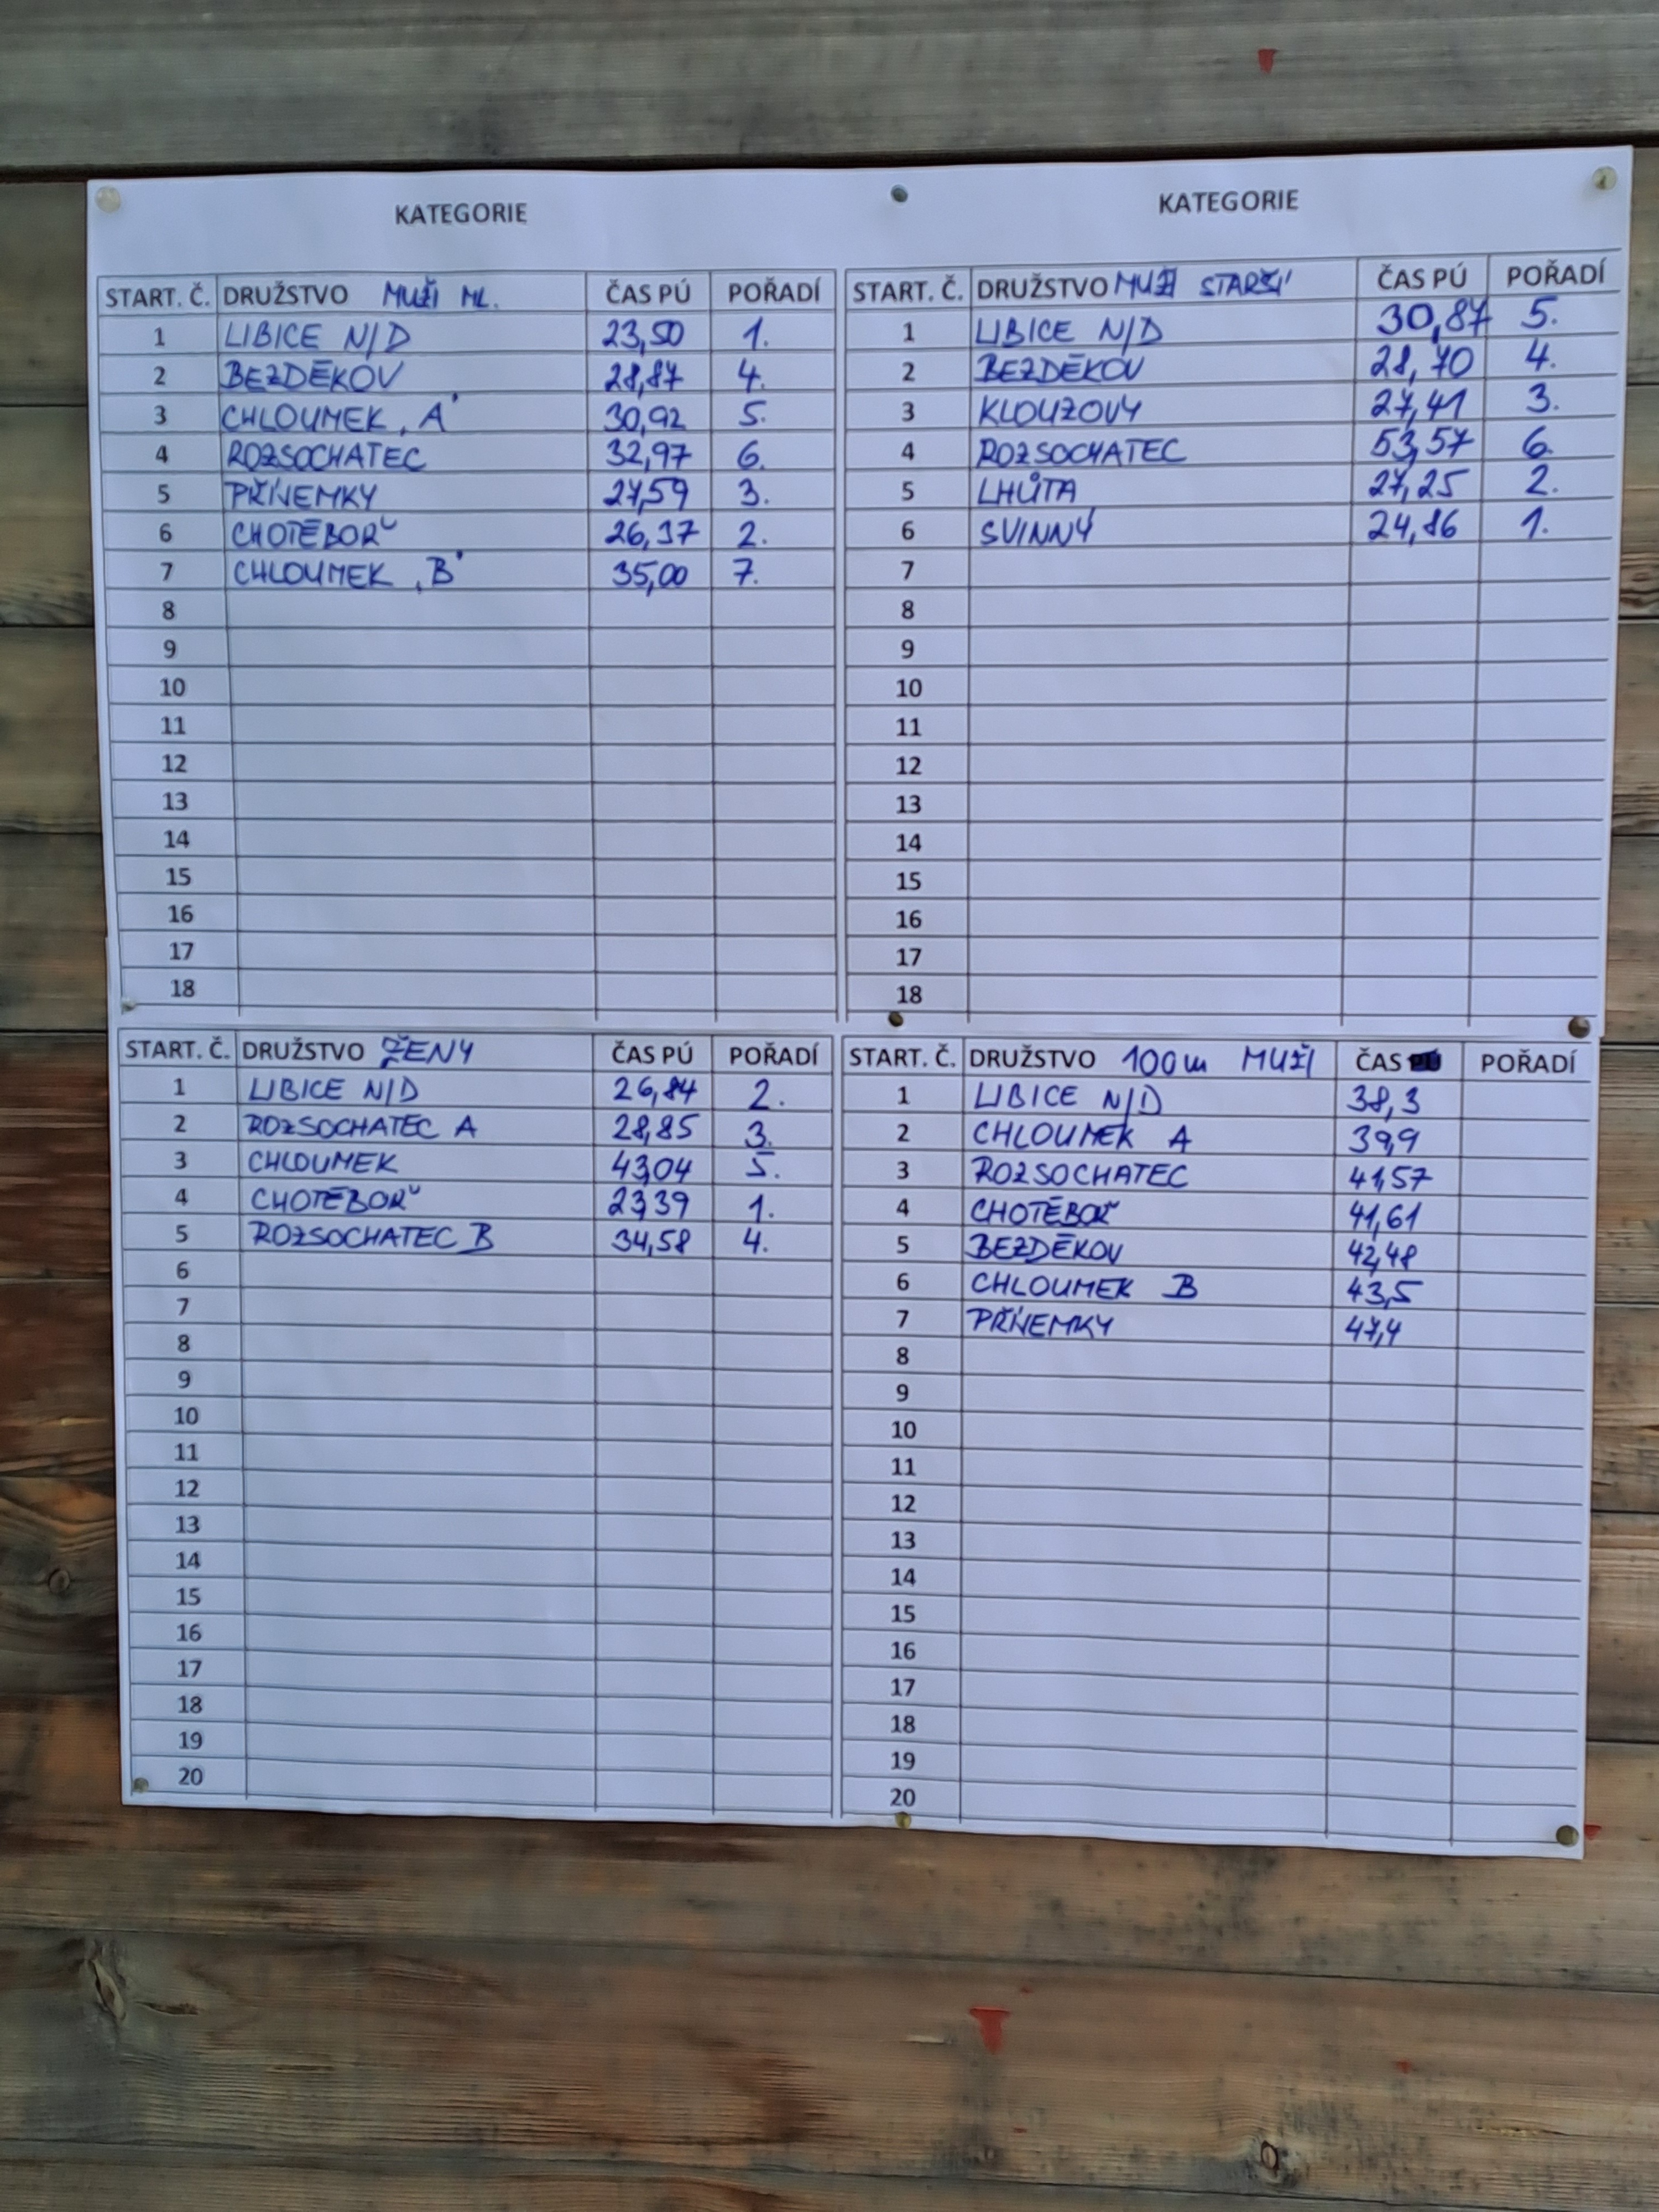 KATEGORIE
START. Č. DRUŽSTVO MUŽI ML. ČAS PÚ POŘADÍ
1 LIBICE N/D 23,50 1.
2 BEZDĚKOV 28,87 4.
3 CHLOUMEK ,A' 30,92 5.
4 ROZSOCHATEC 32,97 6.
5 PŘÍJEMKY 27,59 3.
6 CHOTĚBOŘ 26,37 2.
7 CHLOUMEK ,B' 35,00 7.
8
9
10
11
12
13
14
15
16
17
18
KATEGORIE
START. Č. DRUŽSTVO MUŽI STARŠÍ ČAS PÚ POŘADÍ
1 LIBICE N/D 30,87 5.
2 BEZDĚKOV 28,70 4.
3 KLOUZOVY 27,41 3.
4 ROZSOCHATEC 53,57 6.
5 LHŮTA 27,25 2.
6 SVINNÝ 24,86 1.
7
8
9
10
11
12
13
14
15
16
17
18
START. Č. DRUŽSTVO ŽENY ČAS PÚ POŘADÍ
1 LIBICE N/D 26,84 2.
2 ROZSOCHATEC A 28,85 3.
3 CHLOUMEK 43,04 5.
4 CHOTĚBOŘ 23,39 1.
5 ROZSOCHATEC B 34,58 4.
6
7
8
9
10
11
12
13
14
15
16
17
18
19
20
START. Č. DRUŽSTVO 100m MUŽI ČAS POŘADÍ
1 LIBICE N/D 38,3
2 CHLOUMEK A 39,9
3 ROZSOCHATEC 41,57
4 CHOTĚBOŘ 41,61
5 BEZDĚKOV 42,48
6 CHLOUMEK B 43,5
7 PŘÍJEMKY 47,4
8
9
10
11
12
13
14
15
16
17
18
19
20